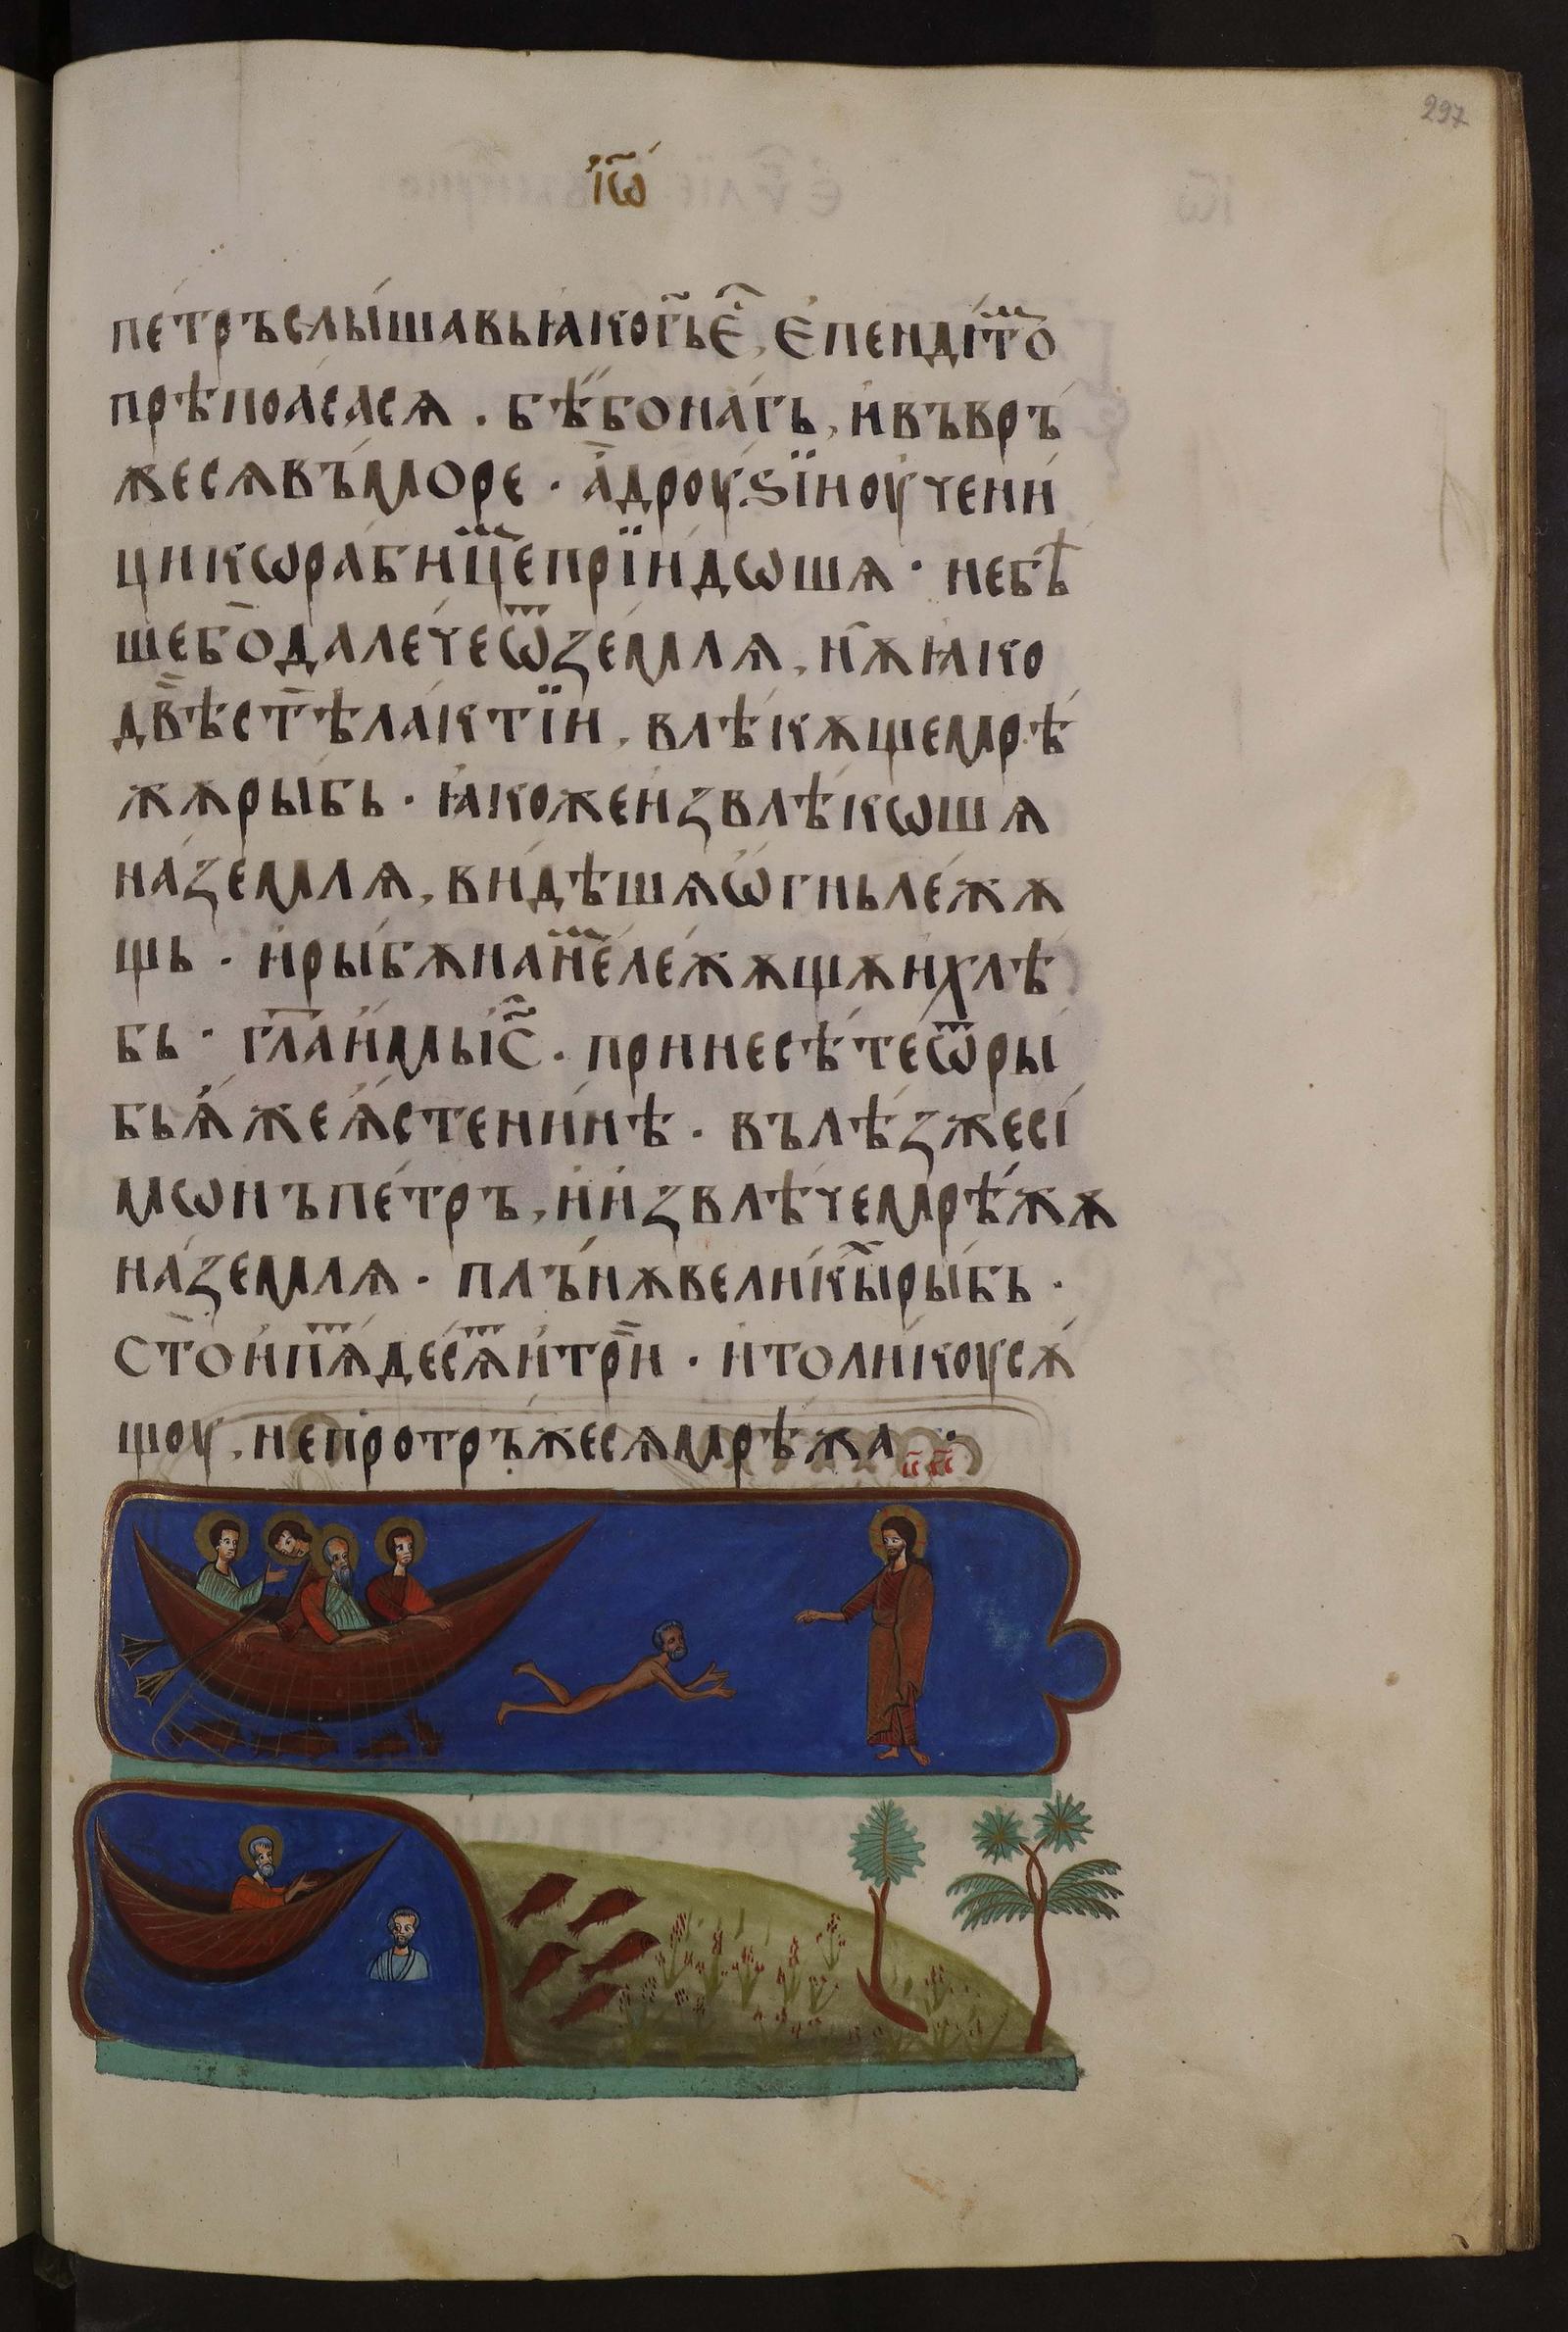 297
і҆ѡ҃
пе́тръслы́шавьꙗ҆когь҃є҆̑, є҆пендїто
прѣпоа́сасѧ · бѣ́бона́гь, и҆въвръ
жесѧвъ́море · а҆дроуѕїиоуч҆ени
цикѡра́бицепрїи́дѡшѧ · небѣ
шебѡдале́чеѿземлѧ, нѫꙗ҆ко
двѣ́стѣла́ктїи, влѣкѫщемрѣ́
жѫры́бь · ꙗ҆кожеи҆звлѣ́кѡшѧ
на́землѧ, ви́дѣшѧѡ҆́гньле́жѫ
щь · и҆ры́бѫнане́ле́жѫщѫихлѣ́
бь · гл҃аи҆мьіс҃ · принесѣ́теѿры́
бьѧ҆́жеѧ҆́стени́нѣ · вълѣ́зжесі́
мѡнъпе́тръ, и҆и҆звлѣ́чемрѣ́жѫ
на́землѧ · плъ́нѫвели́кы́ры́бъ ·
сто̀и҆пѧ́деса́и҆трѝ · и҆толи́коусѫ́
щоу, непротръ́жесѧмрѣ́жа ·
і҃с х҃с